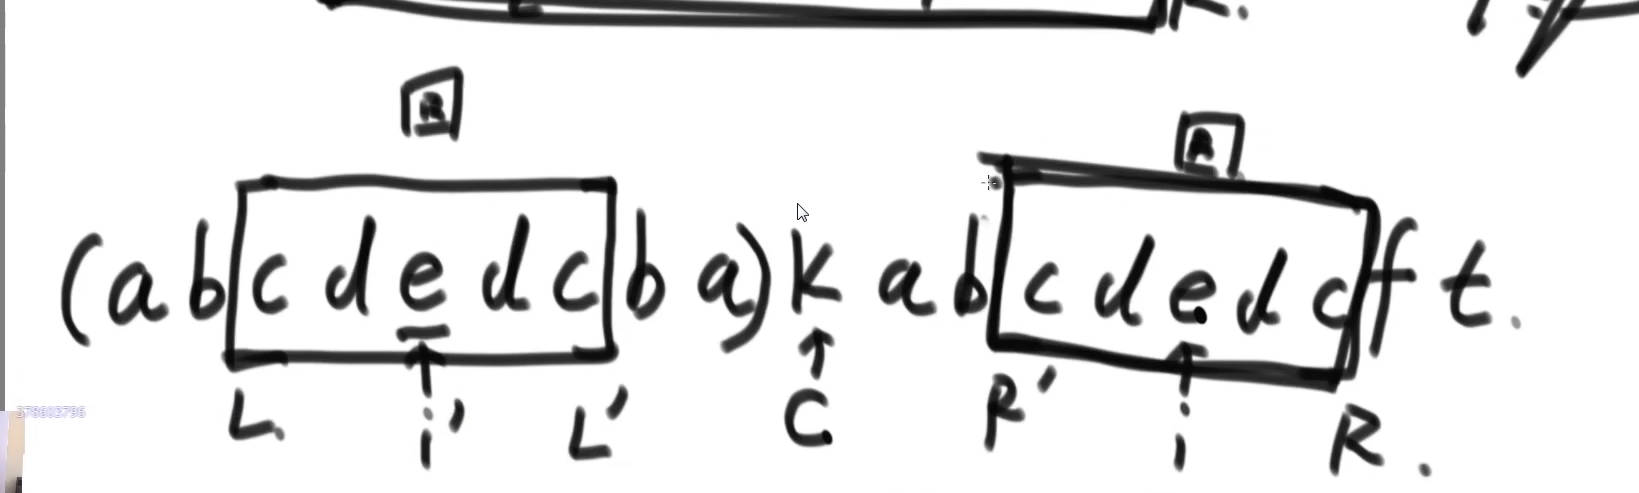 R.
(abcdedcba)k abcdedcft.
L. i' L' C. R' i R.
378602796